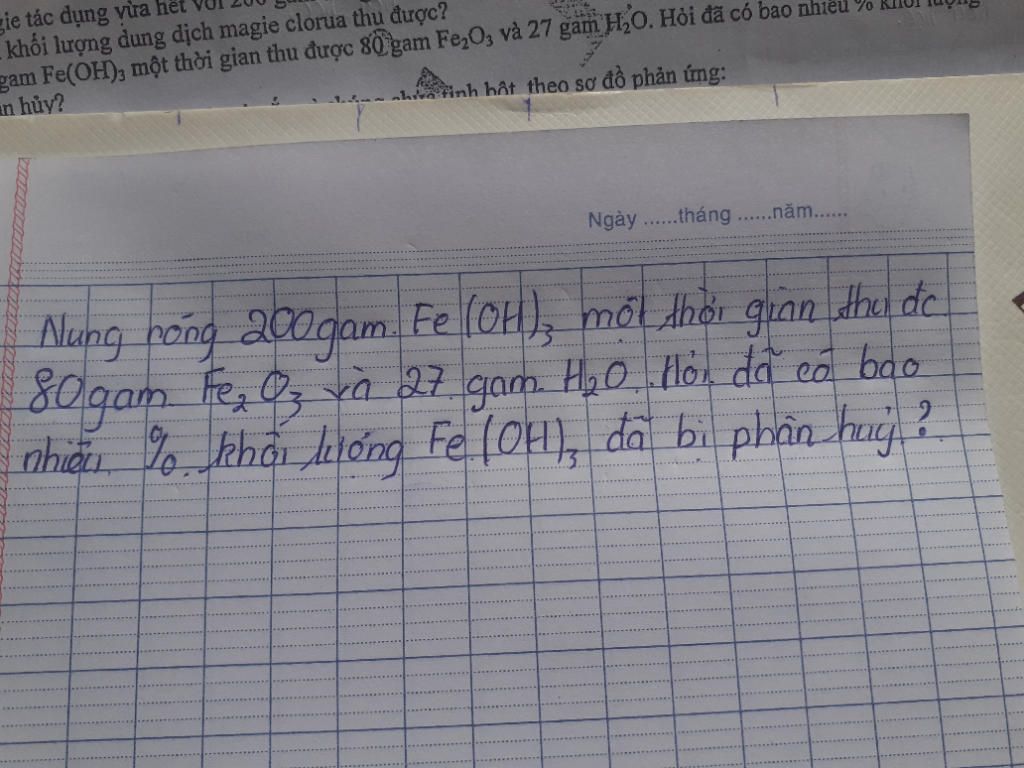 gie tác dụng vừa hết với 200
khối lượng dung dịch magie clorua thu được?
gam Fe(OH)₃ một thời gian thu được 80 gam Fe₂O₃ và 27 gam H₂O. Hỏi đã có bao nhiêu % khối lượng
ân hủy?
tinh bột theo sơ đồ phản ứng:
Ngày ......tháng ......năm......
Nung nóng 200gam Fe(OH)₃ một thời gian thu đc
80gam Fe₂O₃ và 27 gam H₂O. Hỏi đã có bao
nhiêu % khối lượng Fe(OH)₃ đã bị phân huỷ?